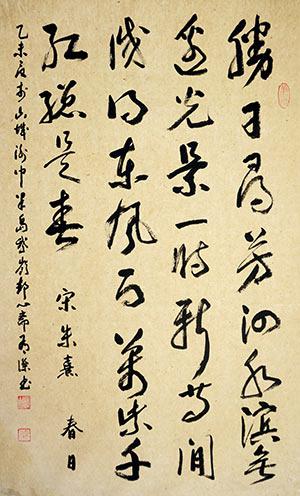 勝日尋芳泗水濱無
邊光景一時新等間
識得東風面萬紫千
紅總是春 宋朱熹 春日
乙未夏於山城渝中半島